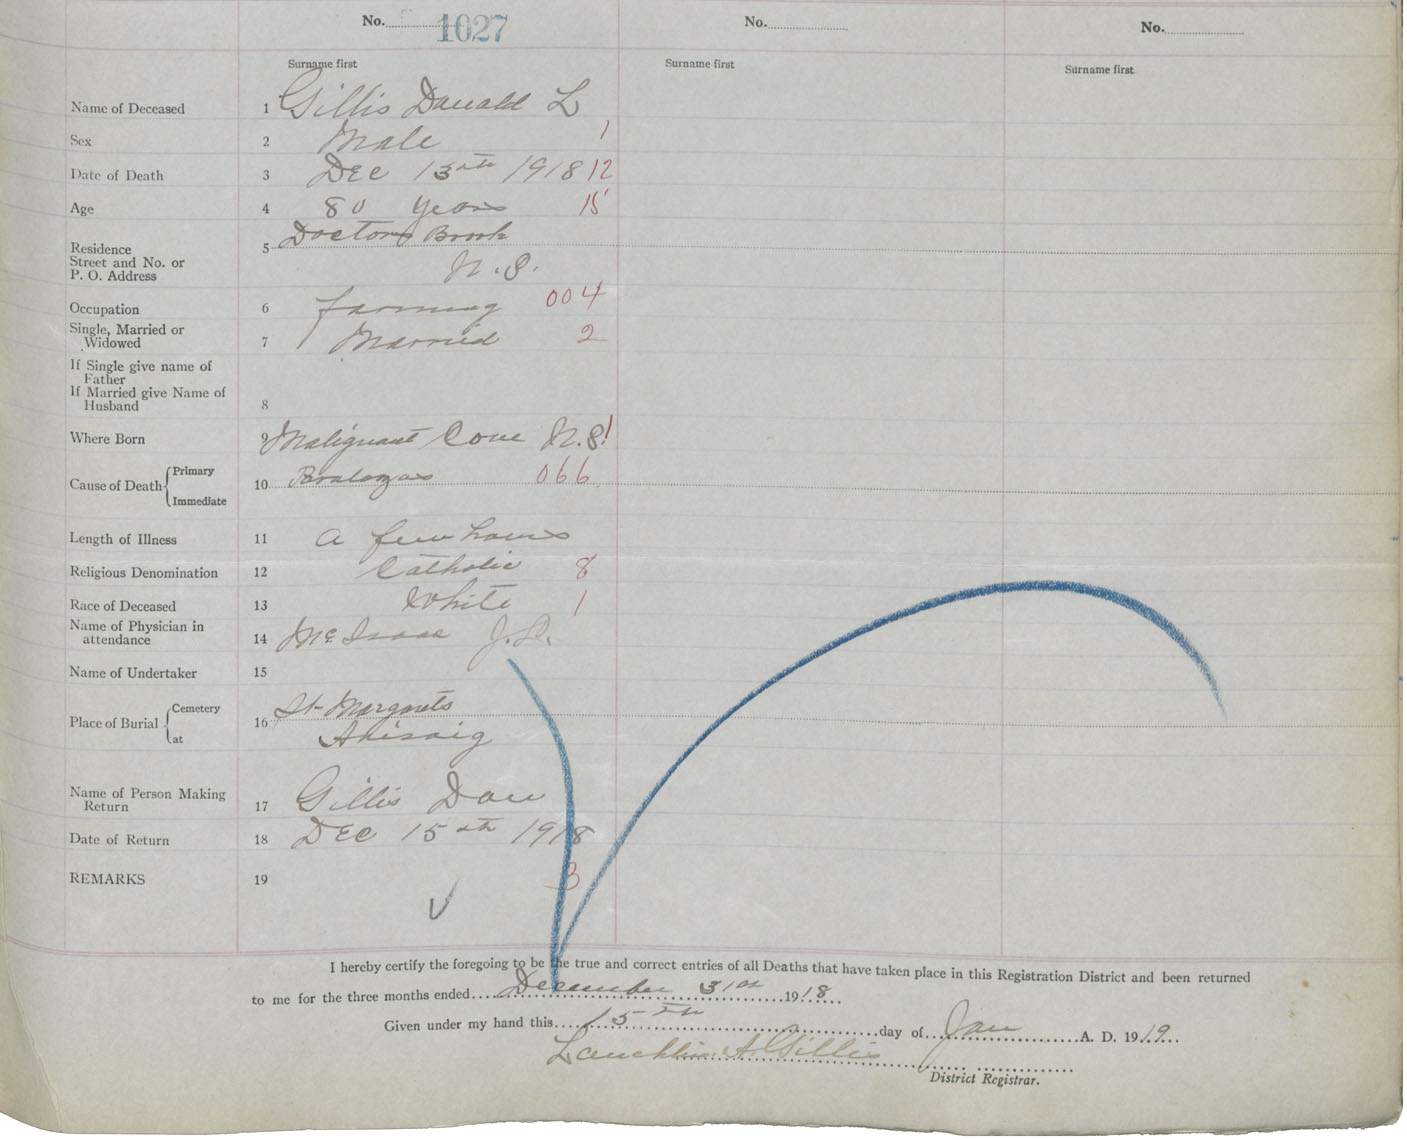 No. 1027 No. No.
Surname first Surname first Surname first
Name of Deceased 1 Gillis Donald L
Sex 2 Male 1
Date of Death 3 Dec 13th 1918 12
Age 4 80 years 15
Residence
Street and No. or
P. O. Address
5 Doctors Brook
N.S.
Occupation 6 farming 004
Single, Married or
Widowed
7 Married 2
If Single give name of
Father
If Married give Name of
Husband
8
Where Born 9 Malignant Cove N.S. 1
Cause of Death { Primary
Immediate
10 066
Length of Illness 11 a few hours
Religious Denomination 12 Catholic 8
Race of Deceased 13 White 1
Name of Physician in
attendance
14 McIsaac J.
Name of Undertaker 15
Place of Burial { Cemetery
at
16 St Margarets
Arisaig
Name of Person Making
Return
17 Gillis Dan
Date of Return 18 Dec 15th 1918
REMARKS 19
3
I hereby certify the foregoing to be the true and correct entries of all Deaths that have taken place in this Registration District and been returned
to me for the three months ended December 31st 1918
Given under my hand this 15th day of Jan A. D. 1919
Lauchlin A. Gillis
District Registrar.